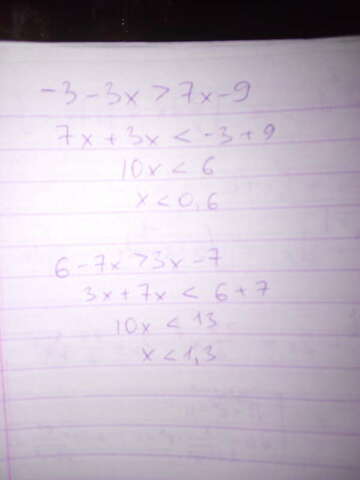 -3-3x>7x-9
7x+3x<-3+9
10x<6
x<0,6
6-7x>3x-7
3x+7x<6+7
10x<13
x<1,3